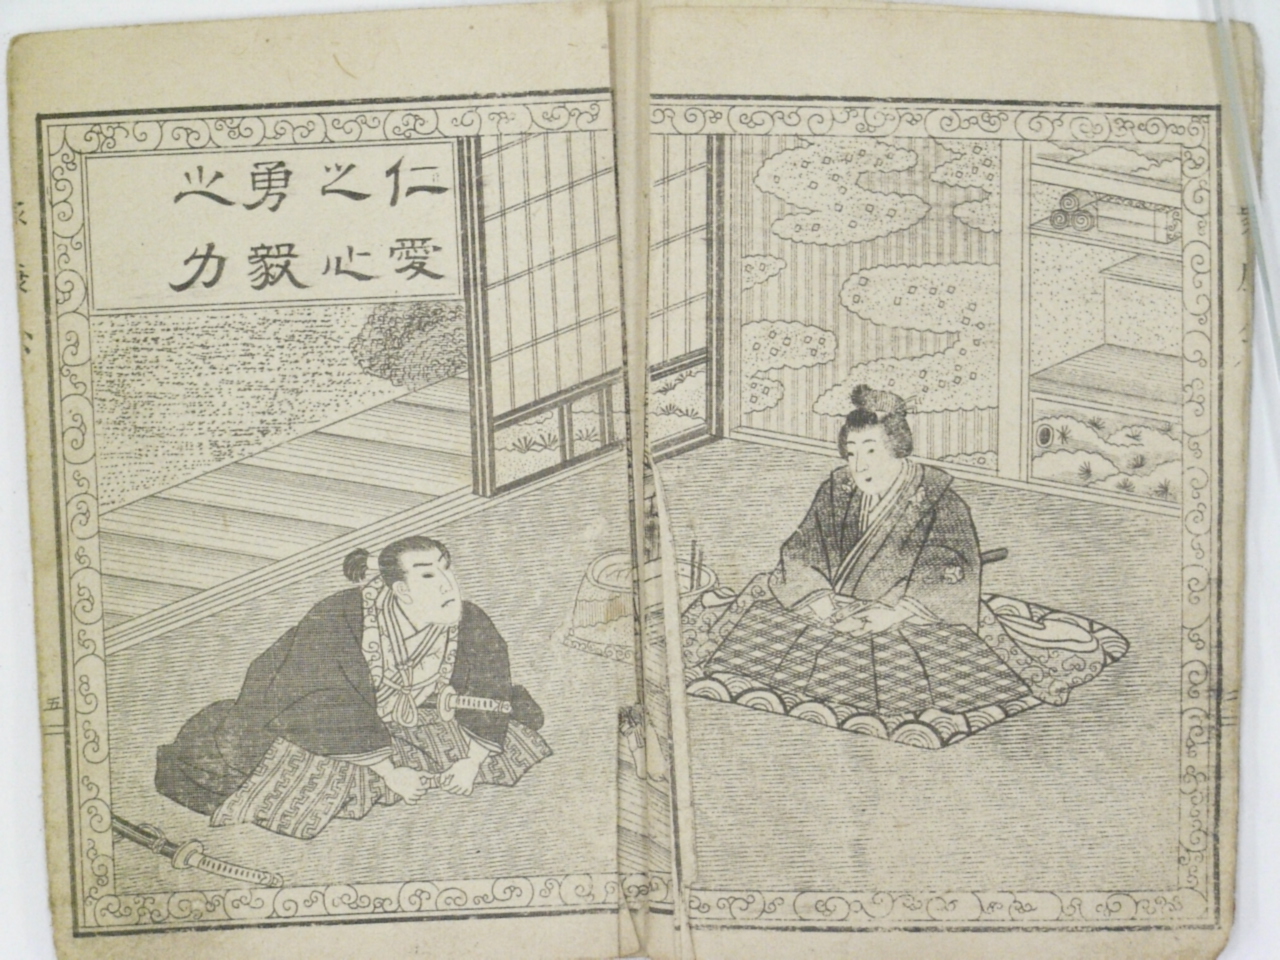 仁愛
之心
勇毅
之力
五